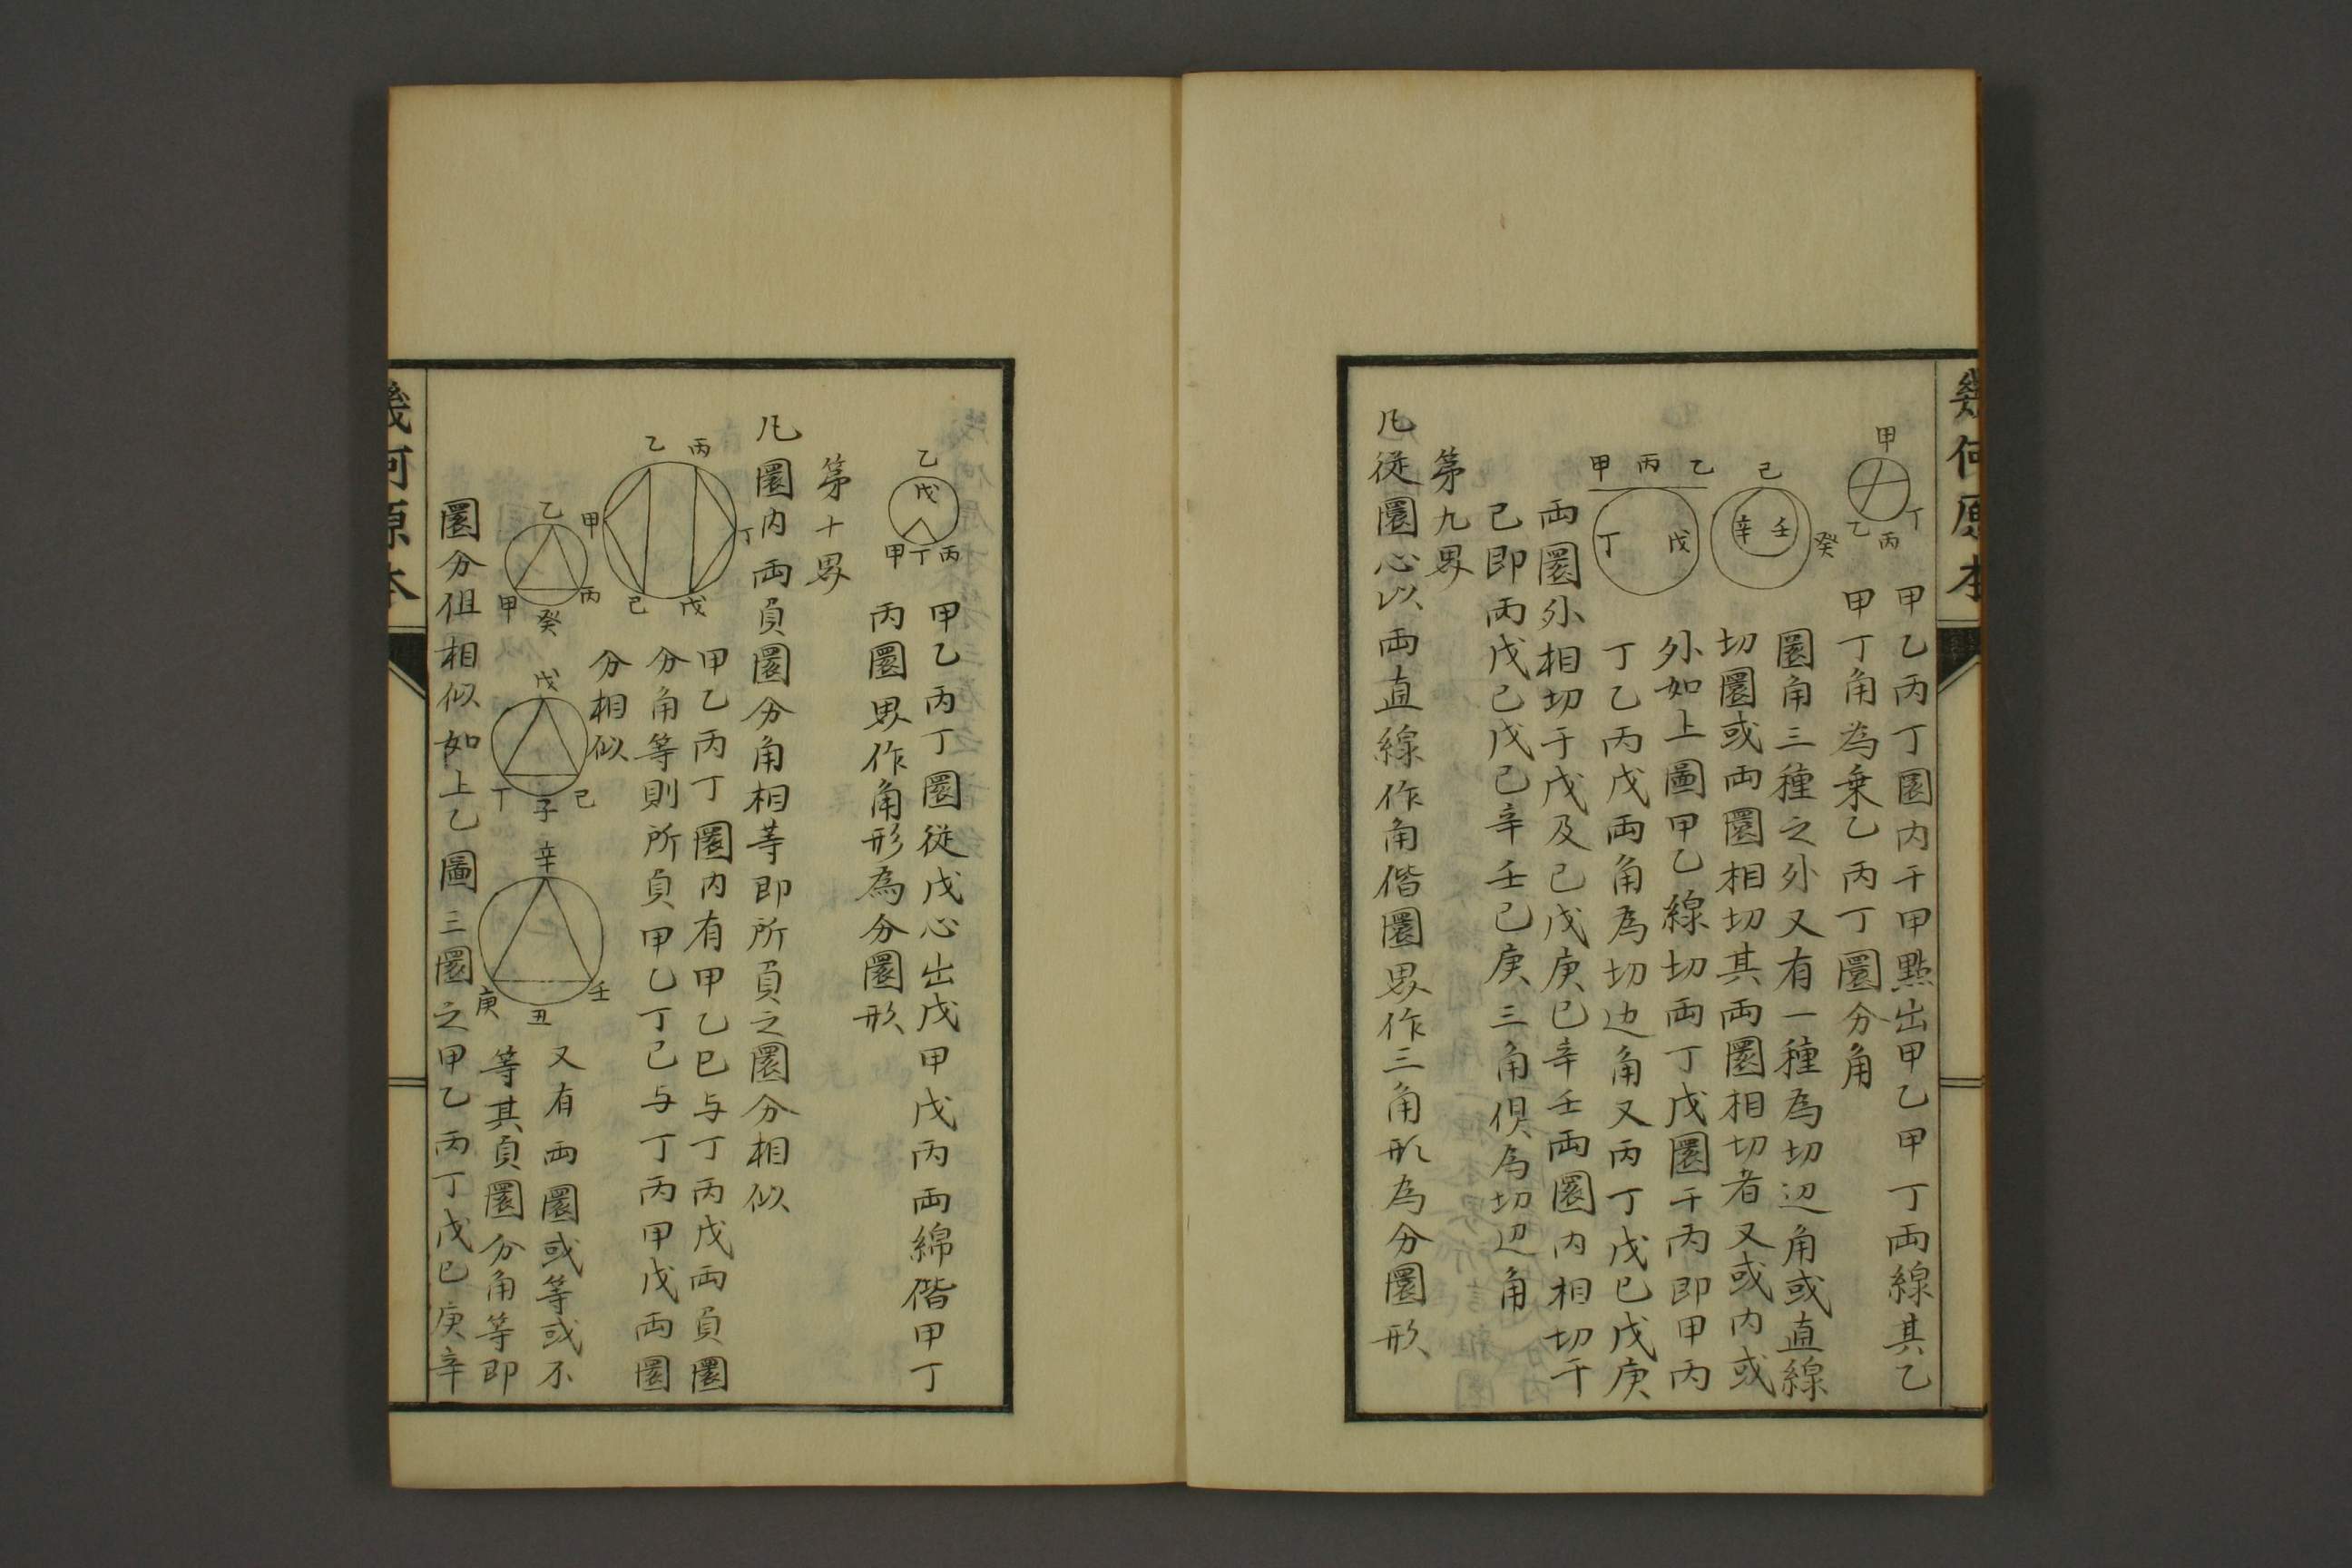 幾何原本
甲
乙
丙
丁
甲乙丙丁圜内于甲點出甲乙甲丁两線其乙
甲丁角為乗乙丙丁圜分角
己
辛
壬
癸
甲丙乙
丁
戊
圜角三種之外又有一種為切邊角或直線
切圜或两圜相切其两圜相切者又或内或
外如上圖甲乙線切两丁戊圜于丙即甲丙
丁乙丙戊两角為切边角又丙丁戊己戊庚
两圜外相切于戊及己戊庚己辛壬两圜内相切于
己即丙戊己戊己辛壬己庚三角俱為切边角
第九界
凡従圜心以两直線作角偕圜界作三角形為分圜形
乙
戊
甲丁丙
甲乙丙丁圜従戊心出戊甲戊丙两綿偕甲丁
丙圜界作角形為分圜形
第十界
凡圜内两負圜分角相等即所負之圜分相似
乙丙
甲
丁
己
戊
甲乙丙丁圜内有甲乙巳与丁丙戊两負圜
分角等則所負甲乙丁己与丁丙甲戊两圜
分相似
乙
甲
癸
丙
戊
丁
子
己
辛
庚
丑
壬
又有两圜或等或不
等其負圜分角等即
圜分俱相似如上乙圖三圜之甲乙丙丁戊己庚辛
幾何原本